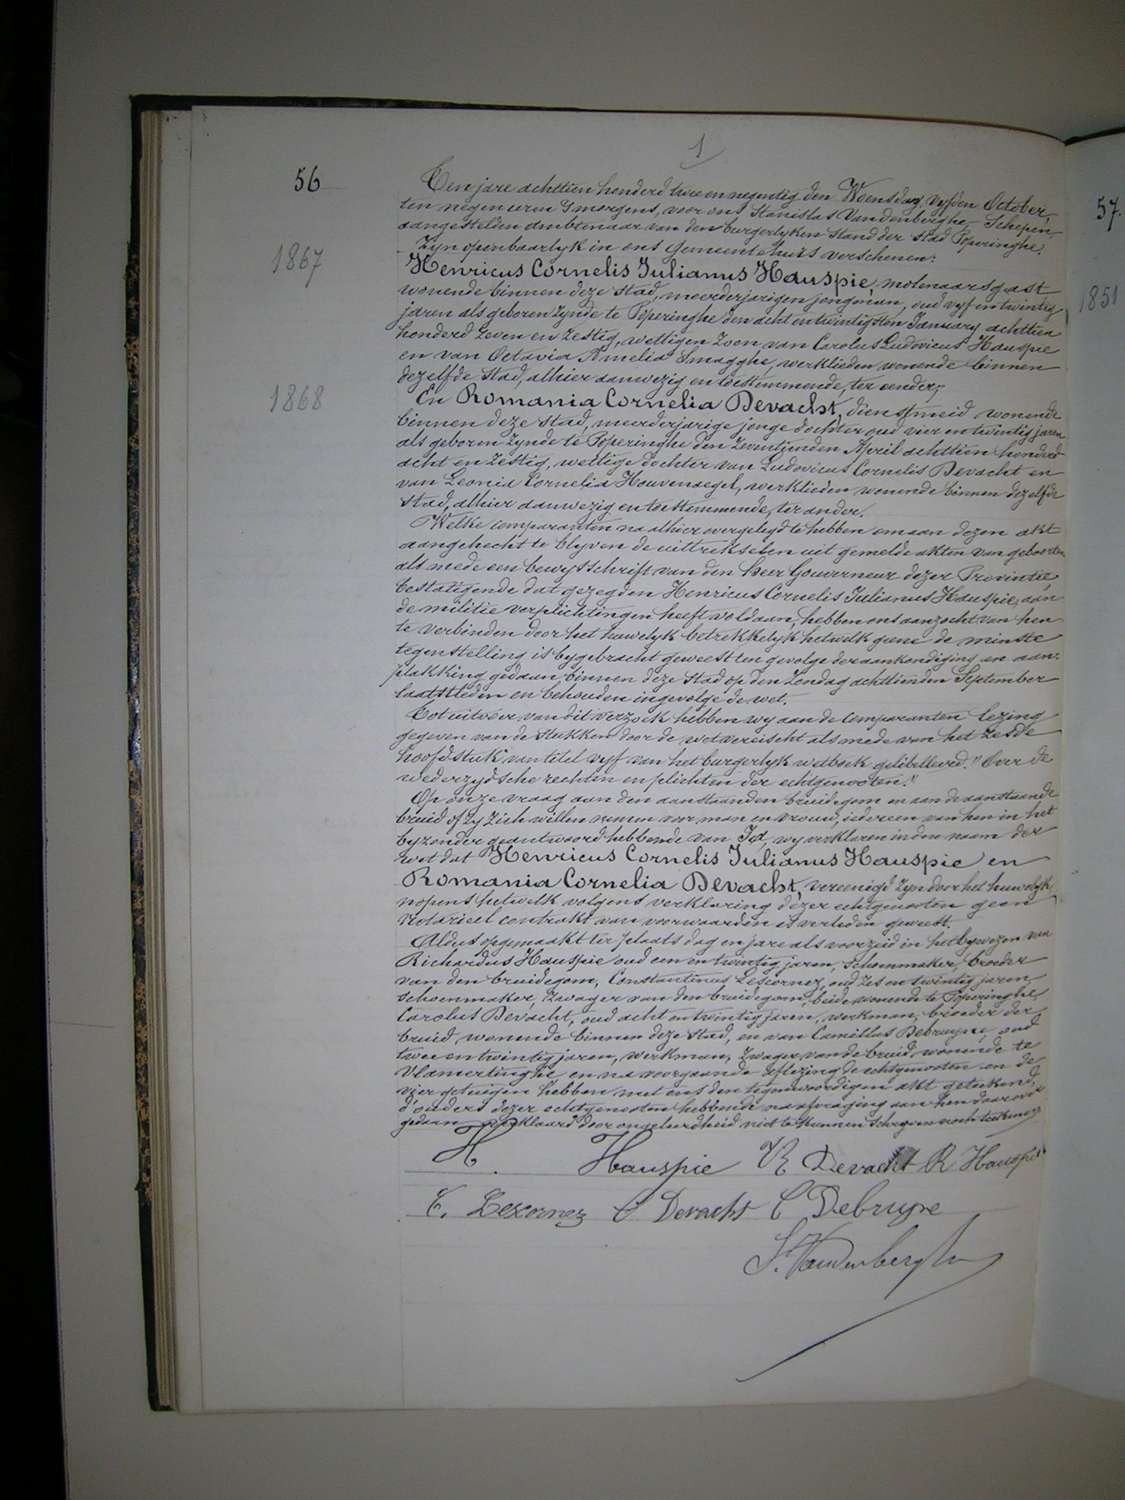 1
56
Ten jare achttien honderd twee en negentig den Woensdag vyfden October,
ten negen uren 's morgens, voor ons Stanislas Vandenberghe, Schepen,
aangestelden ambtenaar van den burgerlyken stand der stad Poperinghe,
Zyn openbaarlyk in ons Gemeentehuis verschenen:
1867
Henricus Cornelis Julianus Hauspie, molenaarsgast
wonende binnen deze stad, meerderjarigen jongman, oud vyf en twintig
jaren als geboren zynde te Poperinghe den acht en twintigsten January achttien
honderd zeven en zestig, wettigen zoon van Carolus Ludovicus Hauspie
en van Octavia Amelia Smagghe, werklieden wonende binnen
dezelfde stad, alhier aanwezig en toestemmende, ter eender;
1868
En Romania Cornelia Devacht, dienstmeid wonende
binnen deze stad, meerderjarige jonge dochter oud vier en twintig jaren
als geboren zynde te Poperinghe den zeventienden April achttien honderd
acht en zestig, wettige dochter van Ludovicus Cornelis Devacht en
van Leonia Cornelia Houvenaegel, werklieden wonende binnen dezelfde
stad, alhier aanwezig en toestemmende, ter ander.
Welke comparanten na alhier overgelegd te hebben om aan dezen akt
aangehecht te blyven de uittrekselen uit gemelde akten van geboorten
als mede een bewysschrift van den Heer Gouverneur dezer Provintie,
bestatigende dat gezegden Henricus Cornelis Julianus Hauspie, aan
de militie verplichtingen heeft voldaan, hebben ons aanzocht van hen
te verbinden door het huwelyk betrekkelyk hetwelk geene de minste
tegenstelling is bygebracht geweest ten gevolge der aankondiging en aan-
plakking gedaan binnen deze stad op den Zondag achttienden September
laatstleden en behouden ingevolge de wet.
Tot uitvoer van dit verzoek hebben wy aan de comparanten lezing
gegeven van de stukken door de wet vereischt als mede van het zesde
hoofdstuk van titel vyf van het burgerlyk wetboek gelibelleerd: "Over de
wederzydsche rechten en plichten der echtgenooten."
Op onze vraag aan den aanstaanden bruidegom en aan de aanstaande
bruid of zy zich willen nemen voor man en vrouw, iedereen van hen in het
byzonder geantwoord hebbende van Ja, wy verklaren in den naam der
wet dat Henricus Cornelis Julianus Hauspie en
Romania Cornelia Devacht, vereenigd zyn door het huwelyk
nopens hetwelk volgens verklaring dezer echtgenooten geen
notarieel contrakt van voorwaarden is verleden geweest.
Aldus opgemaakt ter plaats dag en jare als voorzeid in het bywezen van
Richardus Hauspie oud een en twintig jaren, schoenmaker, broeder
van den bruidegom, Constantinus Lescornez, oud zes en twintig jaren
schoenmaker, zwager van den bruidegom, beide wonende te Poperinghe,
Carolus Devacht, oud acht en twintig jaren, werkman, broeder der
bruid wonende binnen deze stad, en van Camillus Debruyne, oud
twee en twintig jaren, werkman, zwager van de bruid wonende te
Vlamertinghe en na voorgaande aflezing de echtgenooten en de
vier getuigen hebben met ons den tegenwoordigen akt geteekend,
d'ouders dezer echtgenooten hebbende na afvraging aan hen daarover
gedaan verklaard door ongeleerdheid niet te kunnen schryven noch teekenen
H. Hauspie R Devacht R Hauspie
C. Lescornez C Devacht C Debruyne
S. Vandenberghe
57.
1851